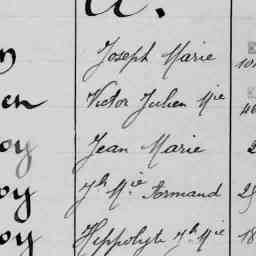 A.
Joseph Marie
en Victor Julien Mie
oy Jean Marie 2
oy Jh Mie Armand 29
oy Hippolyte Jh Mie 18